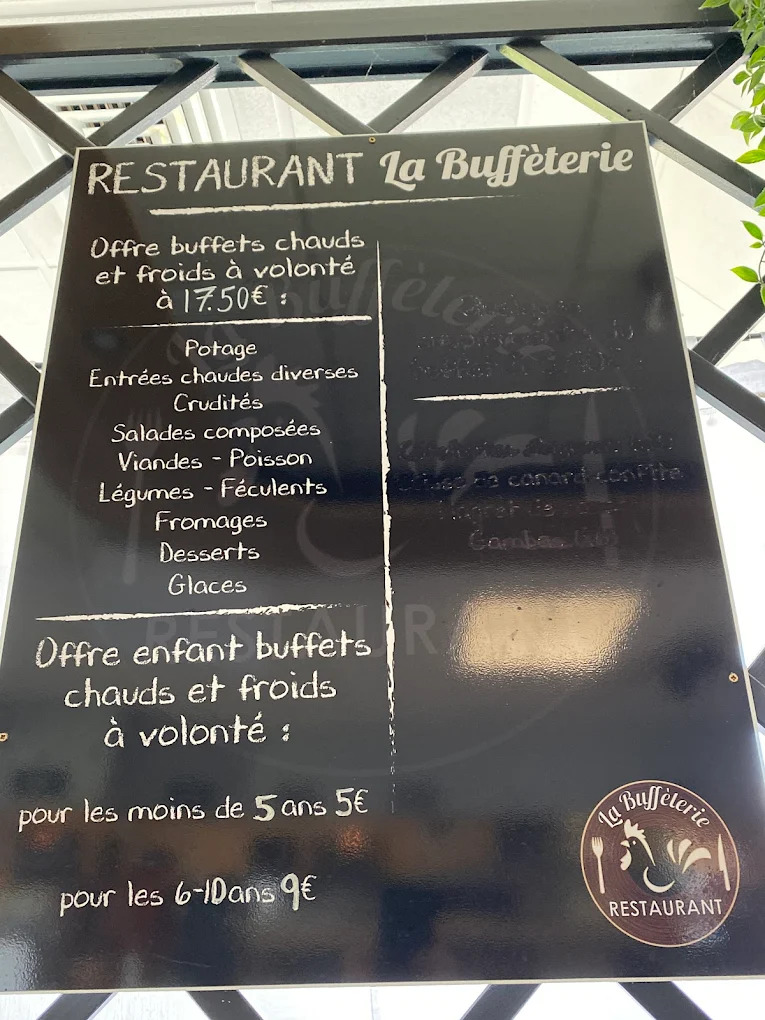 RESTAURANT La Buffèterie
Offre buffets chauds
et froids à volonté
à 17.50€ :
Potage
Entrées chaudes diverses
Crudités
Salades composées
Viandes - Poisson
Légumes - Féculents
Fromages
Desserts
Glaces
Offre enfant buffets
chauds et froids
à volonté :
pour les moins de 5 ans 5€
pour les 6-10ans 9€
de canard confite
Gambas
La Buffèterie
RESTAURANT
La Buffèterie
RESTAURANT